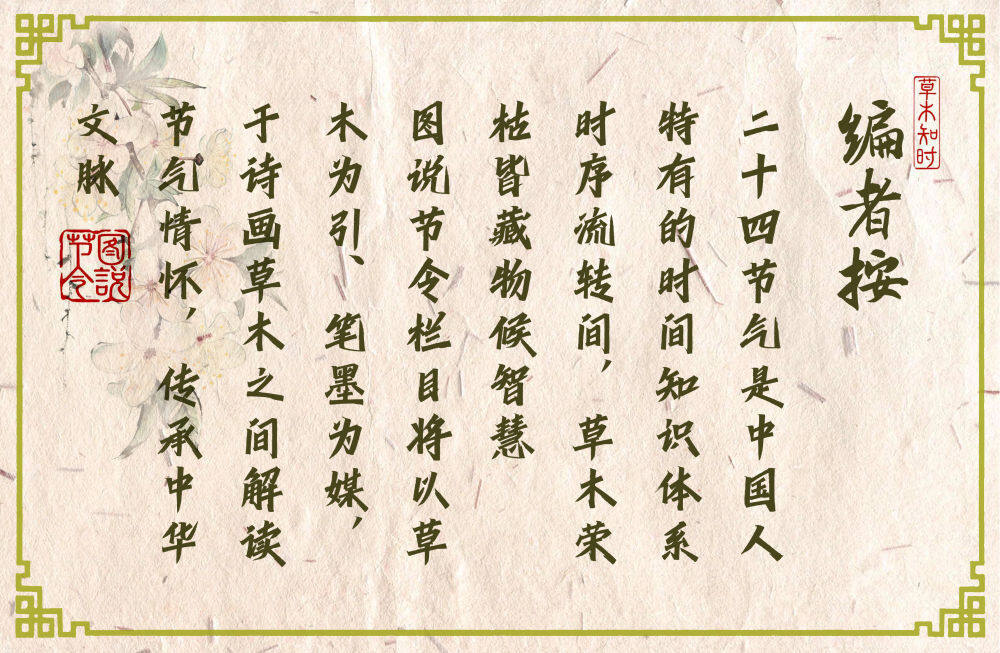 草木知时
编者按
二十四节气是中国人
特有的时间知识体系
时序流转间，草木荣
枯皆藏物候智慧
图说节令栏目将以草
木为引、笔墨为媒，
于诗画草木之间解读
节气情怀，传承中华
文脉
图说节令